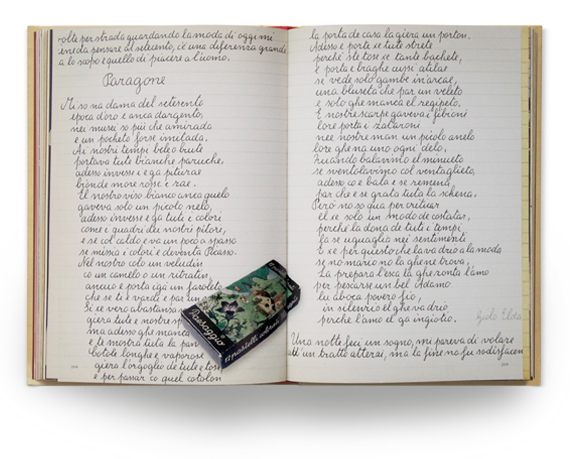 volte per strada guardando la moda di oggi mi
viene da pensar al setecento, c'è una diferenza grande
a lo sopo è quello di piacere a l'uomo.
Paragone
Mi so na dama del setecento
epoca d'oro e anca d'argento,
nei musei so più che amirada
e un pocheto forse imitada.
Ai nostri tempi bele o brute
portava tute bianche paruche,
adesso invesse i e ga piturae
bionde more rosse e rae.
El nostro viso bianco anca quelo
gaveva solo un picolo nelo,
adesso invesse i ga tuti i colori
come i quadri dei nostri pitori,
e se col caldo e va un poco a spasso
se missia i colori e deventa Picasso.
Nel nostro colo un veludin
co un camelo o un ritratin,
ancuo e porta già un faroleto
che se ti è vardi e par un
Si se vero abastansa
giera tute e nostre sp
ma adesso ghe manca
e te mostra tuta la pan
Cotole longhe e vaporose
giera l'orgoglio de tute e tose
e per passar co quel cotolon
la porta de casa la giera un porton.
Adesso e porte se tute strete
perchè ste tose se tante bachete,
e porta e braghe cussì atilae
se vede solo gambe in'arcae,
una bluseta che par un veleto
e solo ghe manca el regipeto.
E nostre scarpe gaveva i fibioni
lore porta i zataroni
nee nostre man un picolo anelo
lore ghe na uno ogni delo,
Quando balavimo el minueto
se sventolavimo col ventaglieto,
adesso co e bala e se remena
par che e se grata tuta la schena.
Però no so qua per criticar
el se solo un modo de costatar,
perchè la dona de tuti i tempi
la se uguaglia nei sentimenti
E se per questo che la va drio a la moda
se no mario no la ghene trova,
La prepara l'esca la ghe ronta l'amo
per pescarse un bel Adamo
lu aboca povero fio,
in silensio el ghe va drio
perchè l'amo el ga ingiotio.
Una notte feci un sogno, mi pareva di volare
all'un tratto atterai, ma la fine non fu sodisfacen
Paesaggio
12 pastelli colorati